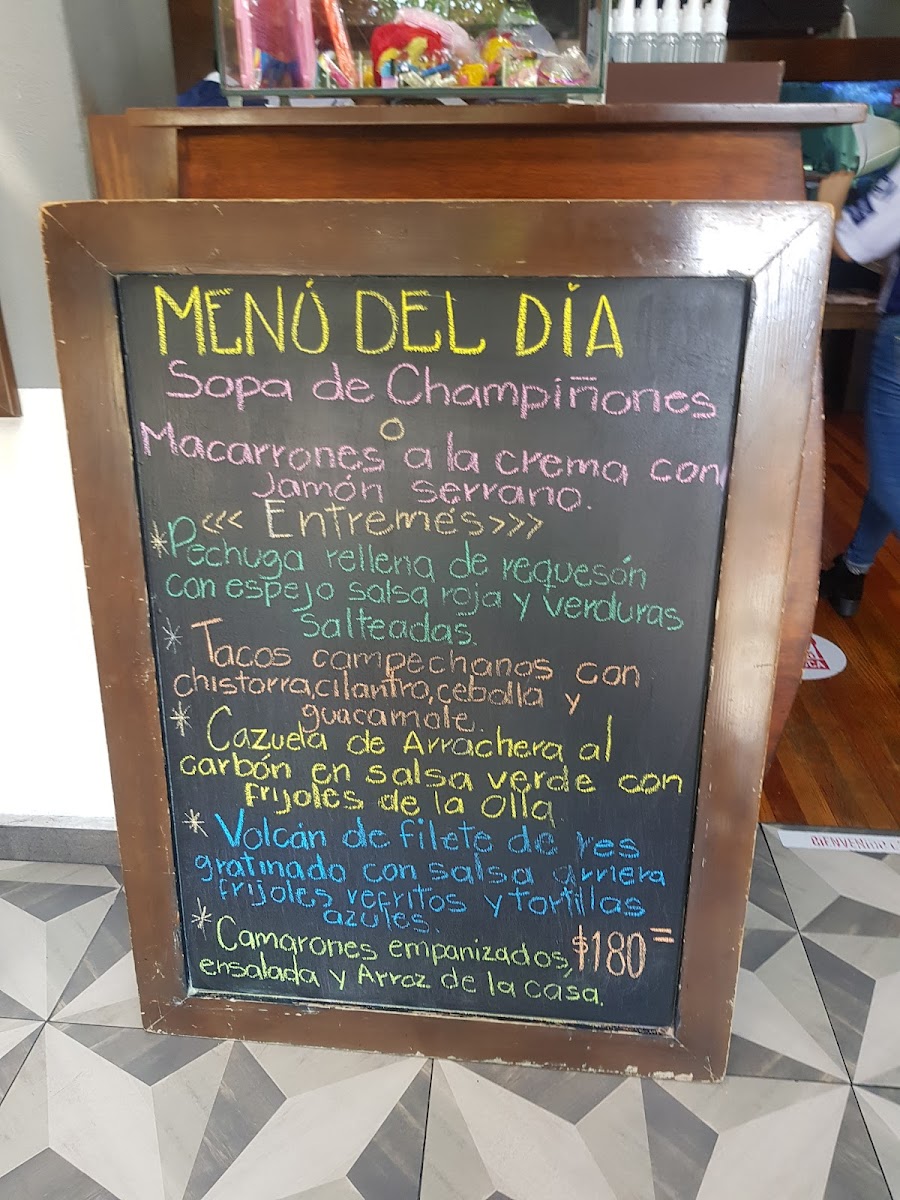 MENÚ DEL DÍA
Sopa de Champiñones
o
Macarrones a la crema con
Jamón serrano.
<<< Entremés>>>
*Pechuga rellena de requesón
con espejo salsa roja y verduras
salteadas.
* Tacos campechanos con
chistorra, cilantro, cebolla y
guacamole.
* Cazuela de Arrachera al
carbón en salsa verde con
frijoles de la Olla
* Volcán de filete de res
gratinado con salsa arriera
frijoles refritos y tortillas
azules.
* Camarones empanizados, $180=
ensalada y Arroz de la casa.